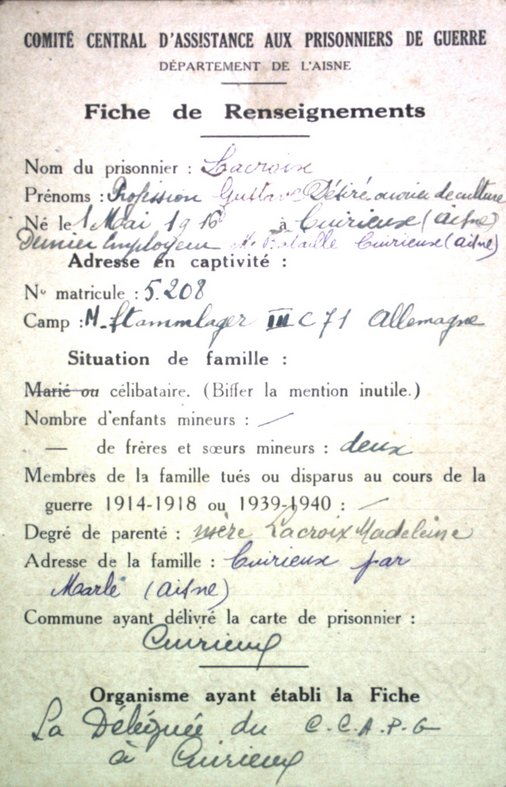 COMITÉ CENTRAL D'ASSISTANCE AUX PRISONNIERS DE GUERRE
DÉPARTEMENT DE L'AISNE
Fiche de Renseignements
Nom du prisonnier : Lacroix
Prénoms : Profission Gustave Désiré ouvrier de culture
Né le 1 Mai 1916 à Cuirieux (aisne)
Dernier Employeur Mr Bataille Cuirieux (aisne)
Adresse en captivité :
N° matricule : 5.208
Camp : M. Stammlager III C 71 Allemagne
Situation de famille :
Marié ou célibataire. (Biffer la mention inutile.)
Nombre d'enfants mineurs : —
— de frères et sœurs mineurs : deux
Membres de la famille tués ou disparus au cours de la
guerre 1914-1918 ou 1939-1940 : —
Degré de parenté : mère Lacroix Madeleine
Adresse de la famille : Cuirieux par
Marle (aisne)
Commune ayant délivré la carte de prisonnier :
Cuirieux
Organisme ayant établi la Fiche
La Déléguée du C.C.A.P.G
à Cuirieux